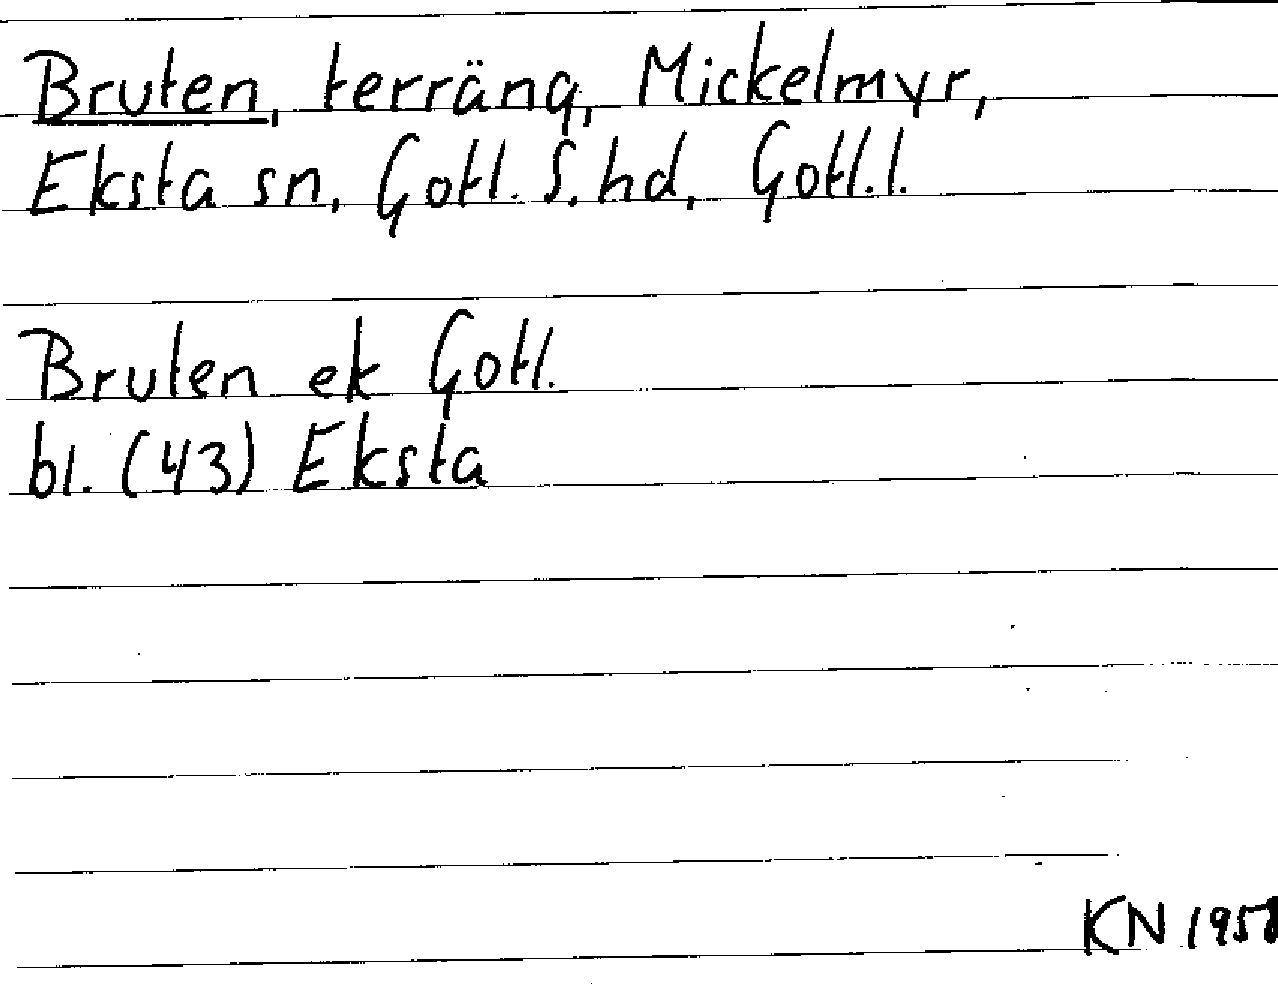 Bruten, terräng, Mickelmyr,
Eksta sn, Gotl. S. hd, Gotl. l.
Bruten ek Gotl.
bl. (43) Eksta
KN 1958